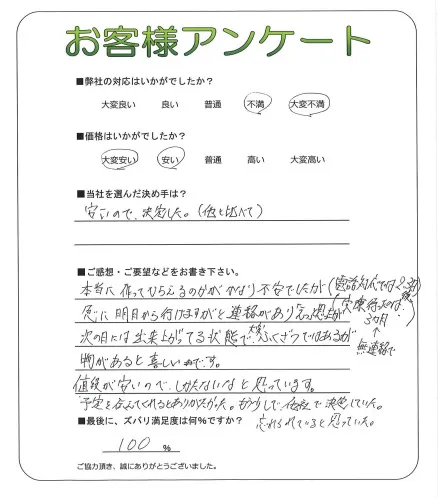 お客様アンケート
■弊社の対応はいかがでしたか？
大変良い 良い 普通 不満 大変不満
■価格はいかがでしたか？
大変安い 安い 普通 高い 大変高い
■当社を選んだ決め手は？
安いので、決定した。（他と比べて）
■ご感想・ご要望などをお書き下さい。
本当に作ってもらえるのかがかなり不安でしたが（電話対応では2~3週
急に明日から行けますがと連絡があり え？と思ったが
実際行えたのは
3ヶ月
↑
無連絡で
次の日には出来上がってる状態で、ふくざつではあるが
物があると喜しいものです。
値段が安いので、しかたないなと思っています。
予定を言ってくれるとありがたかった。もう少しで、他社で決定していた。
忘れられていると思っていた。
■最後に、ズバリ満足度は何％ですか？
100 %
ご協力頂き、誠にありがとうございました。